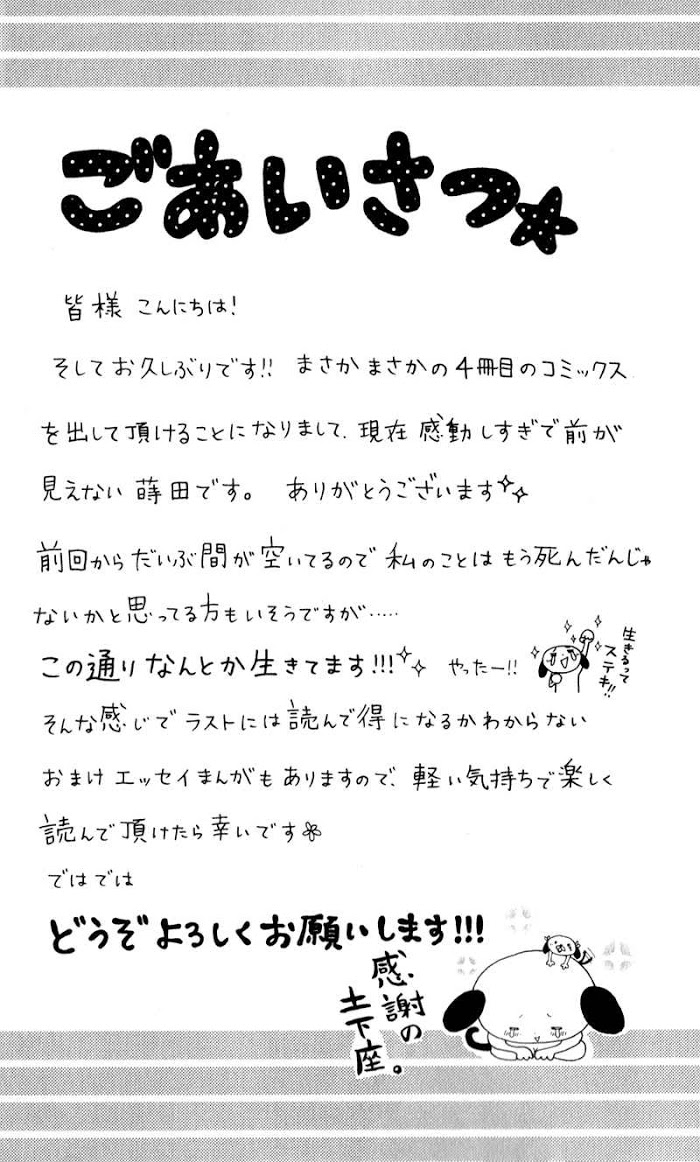 ごあいさつ☆
皆様 こんにちは！
そしてお久しぶりです!! まさかまさかの4冊目のコミックス
を出して頂けることになりまして、現在 感動しすぎで前が
見えない 蒔田です。 ありがとうございます
前回からだいぶ間が空いてるので 私のことはもう死んだんじゃ
ないかと思ってる方もいそうですが……
この通りなんとか生きてます!!! やったー!!
生きるって
ステキ!!
そんな感じで ラストには読んで得になるかわからない
おまけ エッセイまんがもありますので、軽い気持ちで楽しく
読んで頂けたら幸いです
ではでは
どうぞよろしくお願いします!!!
感謝の
土下座。